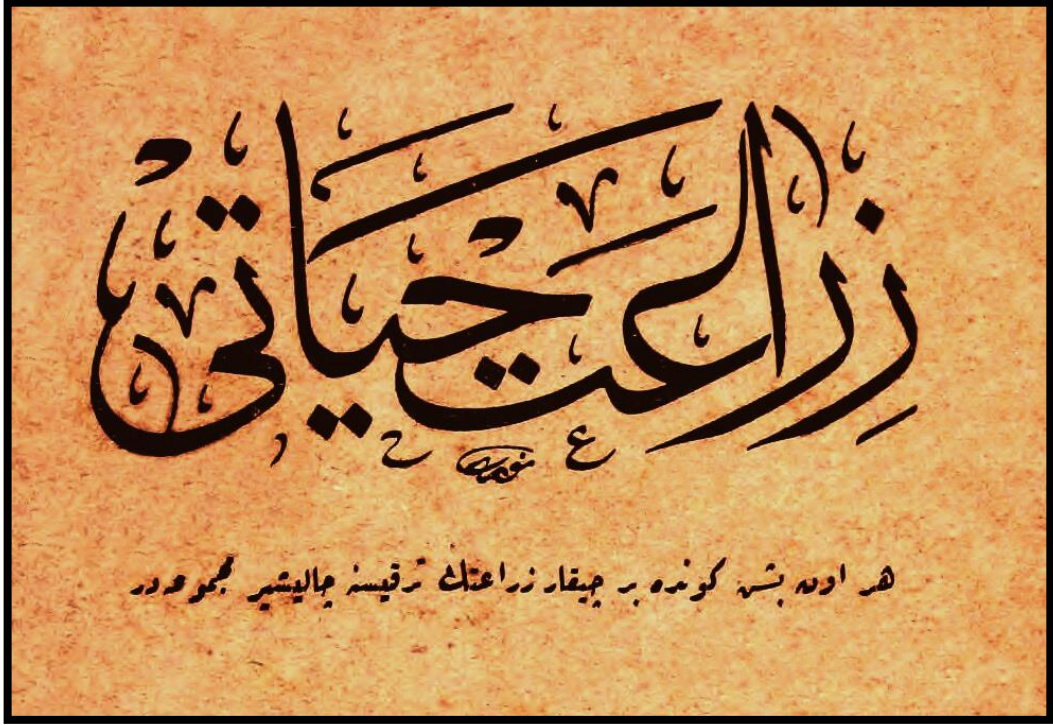 زراعت حیاتی
هر اون بشن كونده بر چیقار زراعتك ترقیسنه چالیشیر مجموعه در